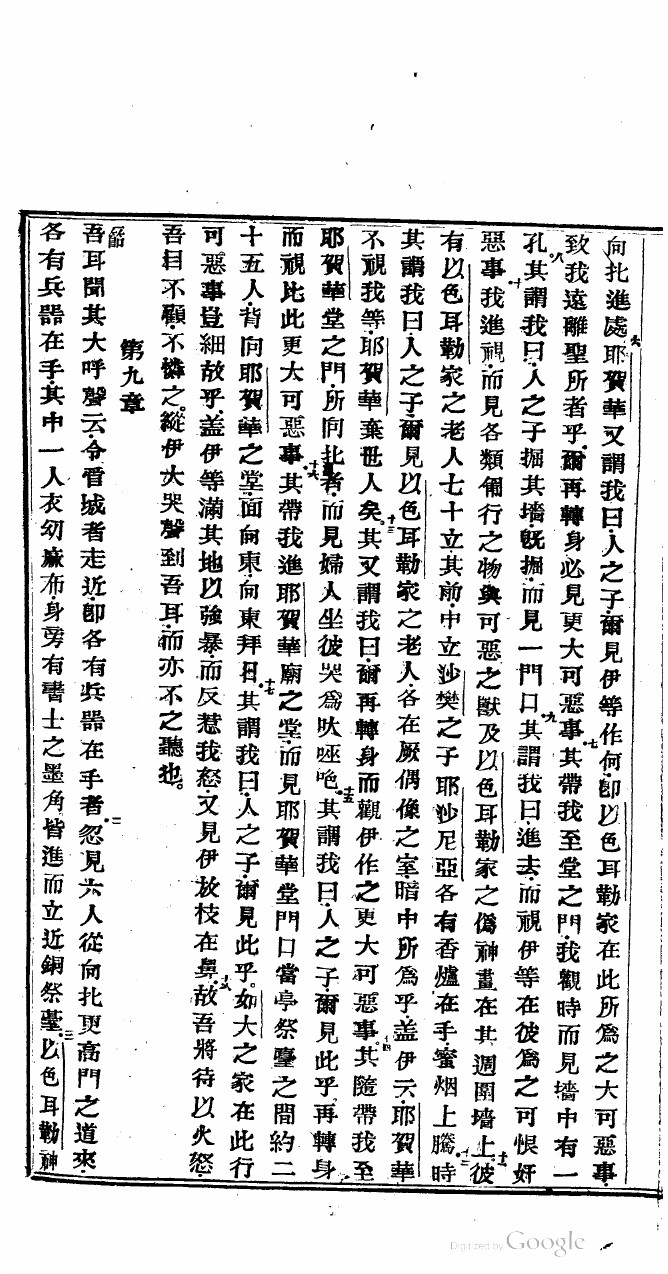 向北進處耶賀華又謂我曰人之子爾見伊等作何卽以色耳勒家在此所爲之大可惡事
致我遠離聖所者乎爾再轉身必見更大可惡事其帶我至堂之門我觀時而見墻中有一
孔其謂我曰人之子掘其墻旣掘而見一門口其謂我曰進去而視伊等在彼爲之可恨奸
惡事我進視而見各類匍行之物與可惡之獸及以色耳勒家之偽神畫在其週圍墻上彼
有以色耳勒家之老人七十立其前中立沙樊之子耶沙尼亞各有香爐在手蜜烟上騰時
其謂我曰人之子爾見以色耳勒家之老人各在厥偶像之室暗中所爲乎盖伊云耶賀華
不視我等耶賀華棄世人矣其又謂我曰爾再轉身而觀伊作之更大可惡事其隨帶我至
耶賀華堂之門所向北者而見婦人坐彼哭爲吠咂咆其謂我曰人之子爾見此乎再轉身
而視比此更大可惡事其帶我進耶賀華廟之堂而見耶賀華堂門口當亭祭臺之間約二
十五人背向耶賀華之堂面向東向東拜日其謂我曰人之子爾見此乎如大之家在此行
可惡事豈細故乎盖伊等滿其地以強暴而反惹我怒又見伊放枝在鼻故吾將待以火怒
吾目不顧不憐之縱伊大哭聲到吾耳而亦不之聽也
第九章
吾耳聞其大呼聲云令督城者走近卽各有兵器在手者忽見六人從向北更高門之道來
各有兵器在手其中一人衣幼蔴布身旁有書士之墨角皆進而立近銅祭臺以色耳勒神
Digitized by Google